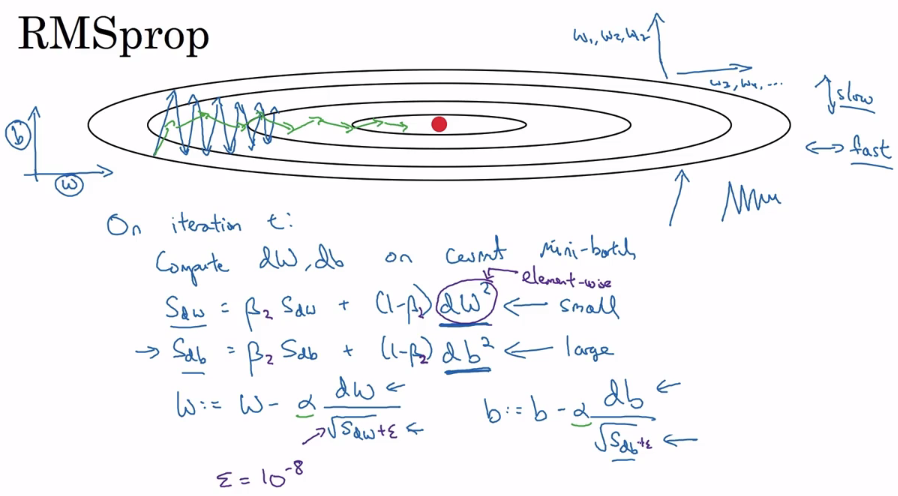 RMSprop
w₁, w₂, w₇
w₃, w₄, ...
slow
fast
b
w
On iteration t:
Compute dW, db on current mini-batch
element-wise
S_dw = β₂ S_dw + (1-β₂) dW² ← small
→ S_db = β₂ S_db + (1-β₂) db² ← large
W := W - α dW / √S_dw + ε ← b := b - α db / √S_db + ε ←
ε = 10⁻⁸